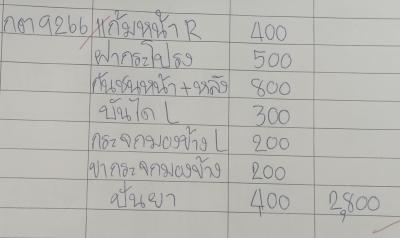 กตา 9266 แก้มหน้า R 400
ฝากระโปรง 500
กันชนหน้า+หลัง 800
บันได L 300
กระจกมองข้าง L 200
ขากระจกมองข้าง 200
ปั่นยา 400 2,800